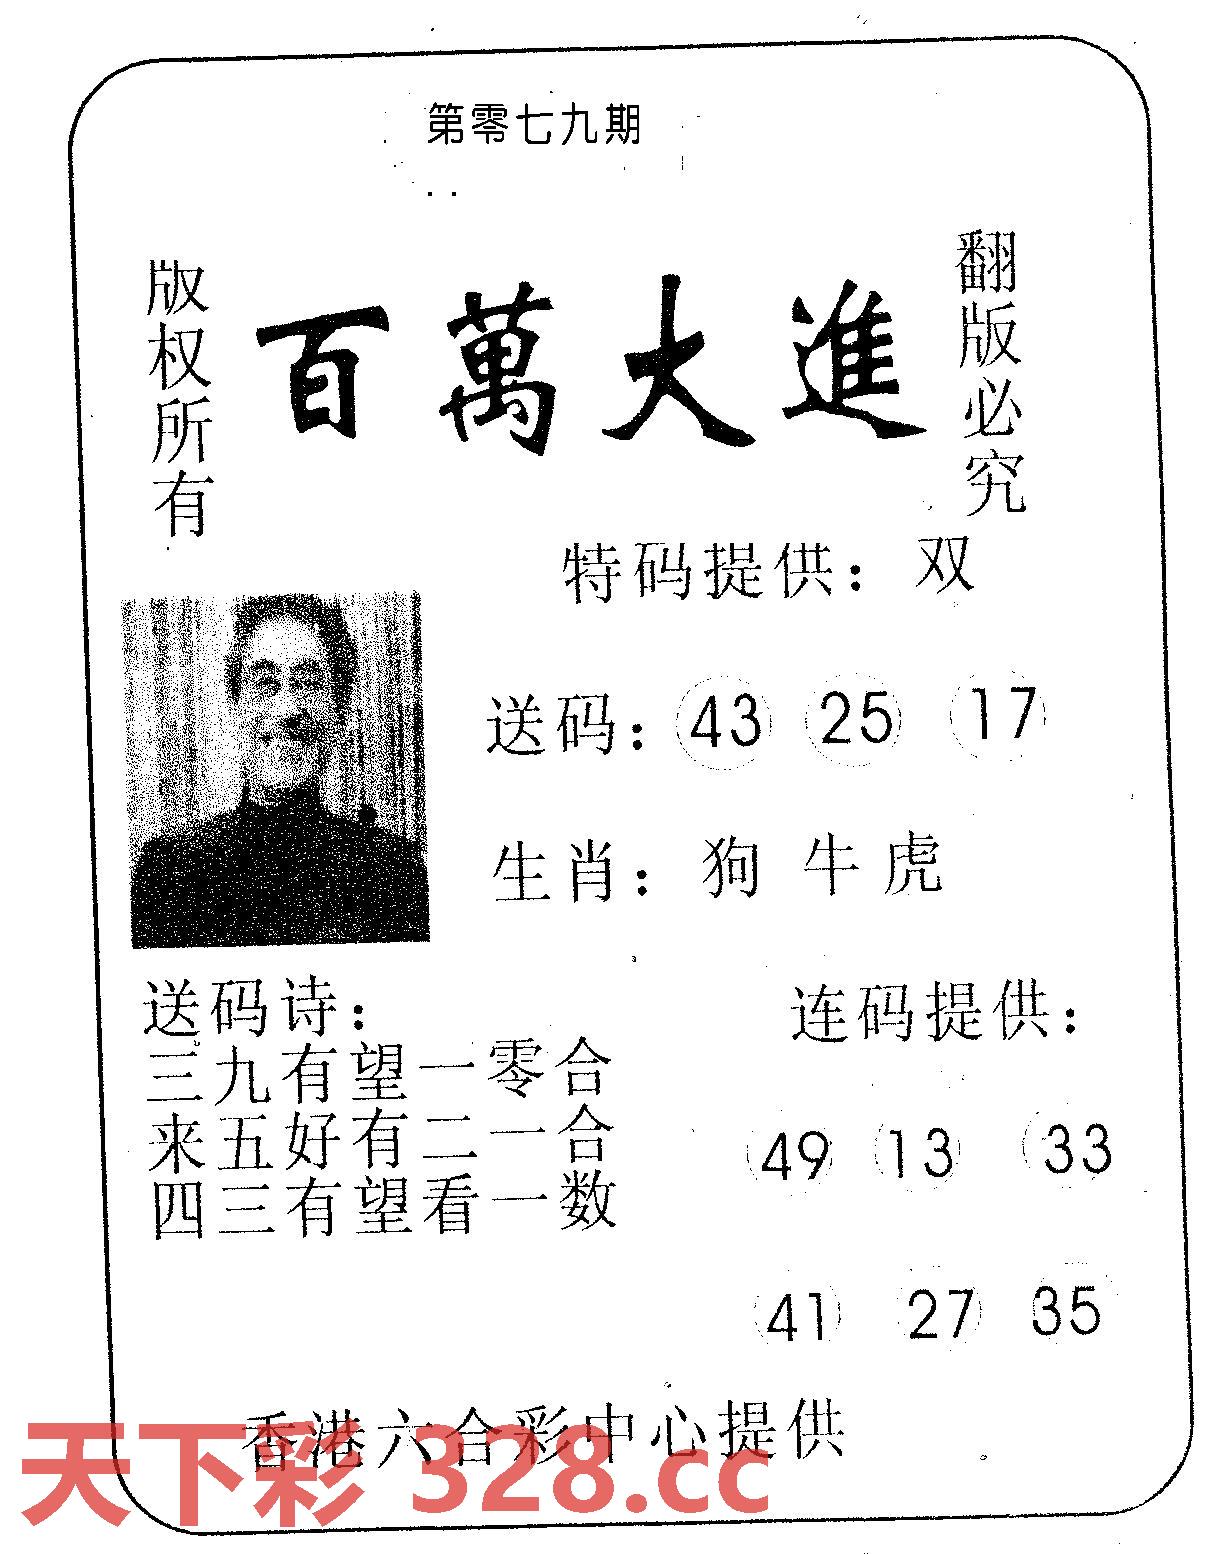 第零七九期
版权所有
百萬大進
翻版必究
特码提供：双
送码：43 25 17
生肖：狗 牛 虎
送码诗：
三九有望一零合
来五好有二一合
四三有望看一数
连码提供：
49 13 33
41 27 35
香港六合彩中心提供
天下彩 328.cc